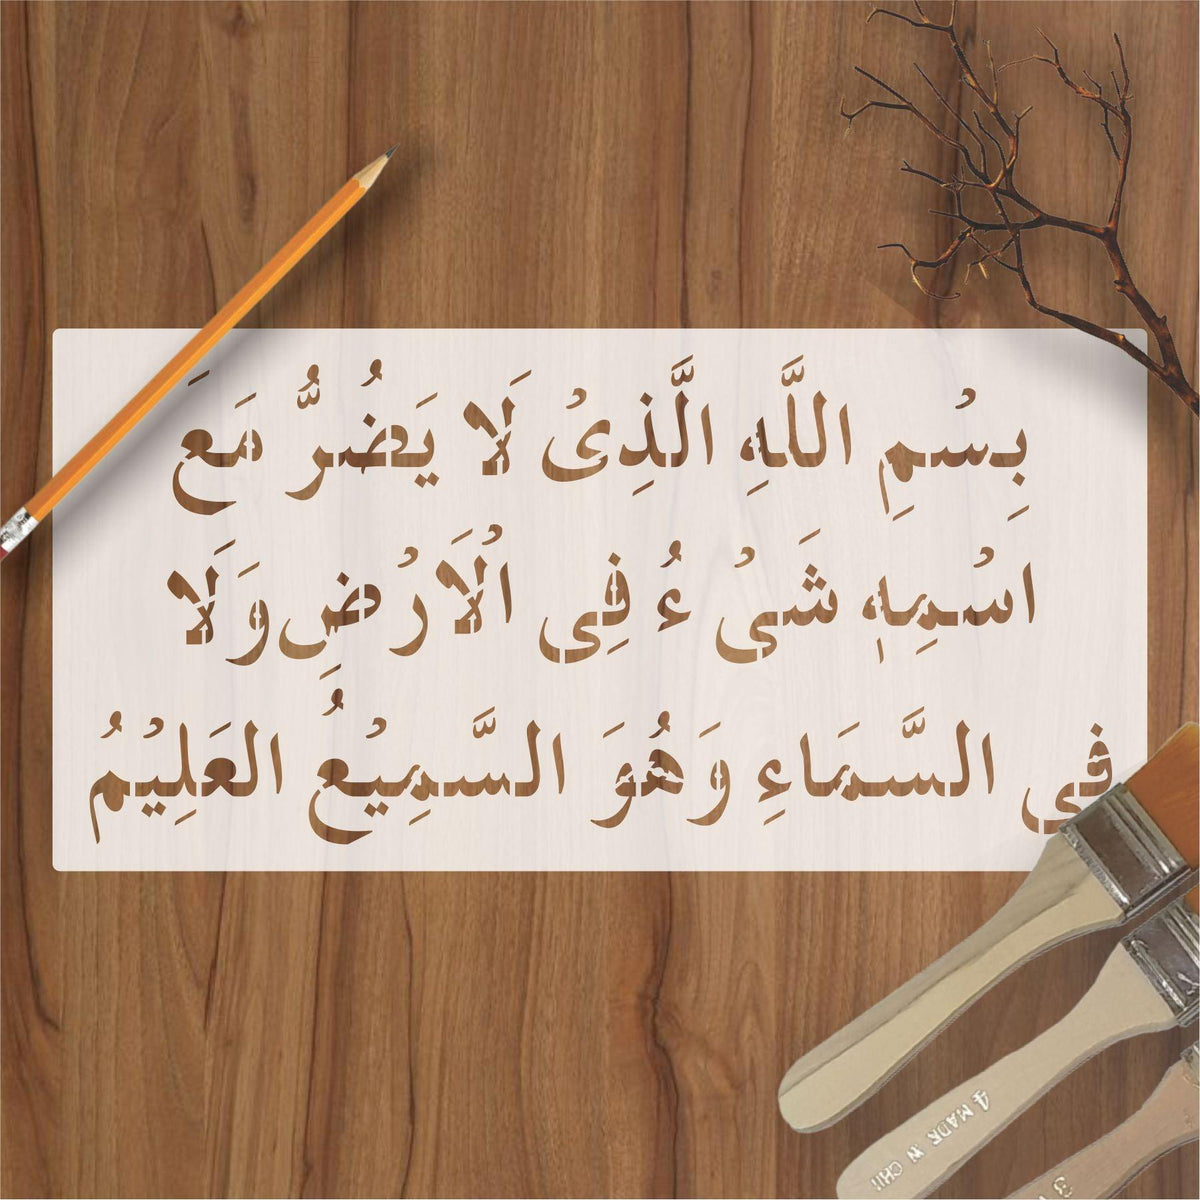 بِسْمِ اللَّهِ الَّذِىْ لَا يَضُرُّ مَعَ
اسْمِهٖ شَىْءُ فِى الْاَرْضِ وَلَا
فِي السَّمَاءِ وَهُوَ السَّمِيْعُ العَلِيْمُ
4 MADE W CHI
3